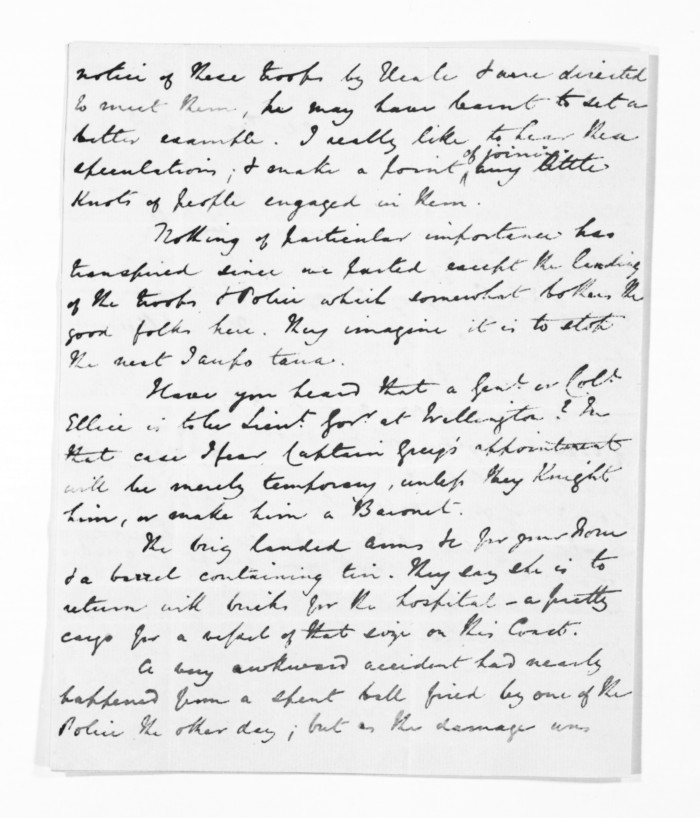 notice of these troops by & were directed
to meet them, he may have learnt to set a
better example. I really like to hear these
speculations; & make a point of joining any little
Knots of people engaged in them.
Nothing of particular importance has
transpired since we parted except the landing
of the troops & Police which somewhat bothers the
good folks here. They imagine it is to stop
the next Taupo taua.
Have you heard that a Genl. or Col.
Ellice is to be Lieut. Govr. at Wellington? In
that case I fear Captain Grey's appointment
will be merely temporary, unless they Knight
him, or make him a Baronet.
The brig landed arms &c for your Home
& a barrel containing tin. They say she is to
return with bricks for the hospital - a pretty
cargo for a vessel of that size on this Coast.
A very awkward accident had nearly
happened from a spent ball fired by one of the
Police the other day; but as the damage was